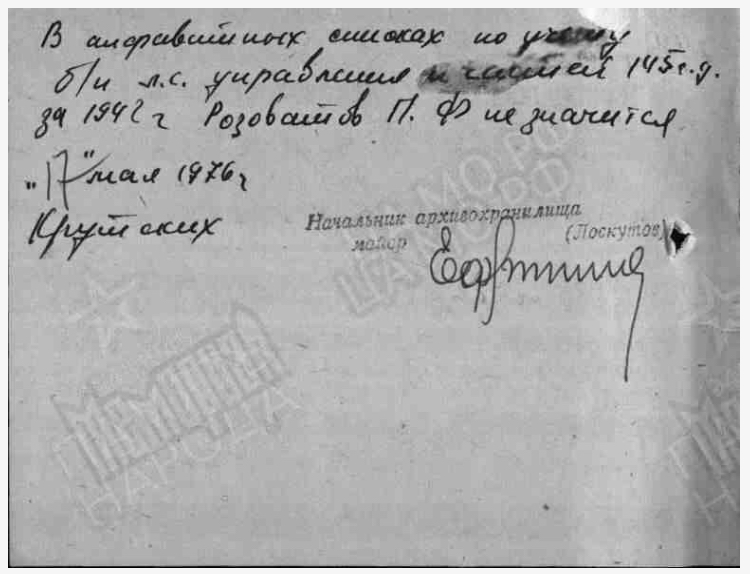 В алфавитных списках по учету
б/п л.с. управления и частей 145 с.д.
за 1942 г Розоватов П. Ф не значится
"17" мая 1976 г
Крутских
Начальник архивохранилища
майор (Лоскутов)
ПАМЯТЬ
НАРОДА
ЦАМО РФ